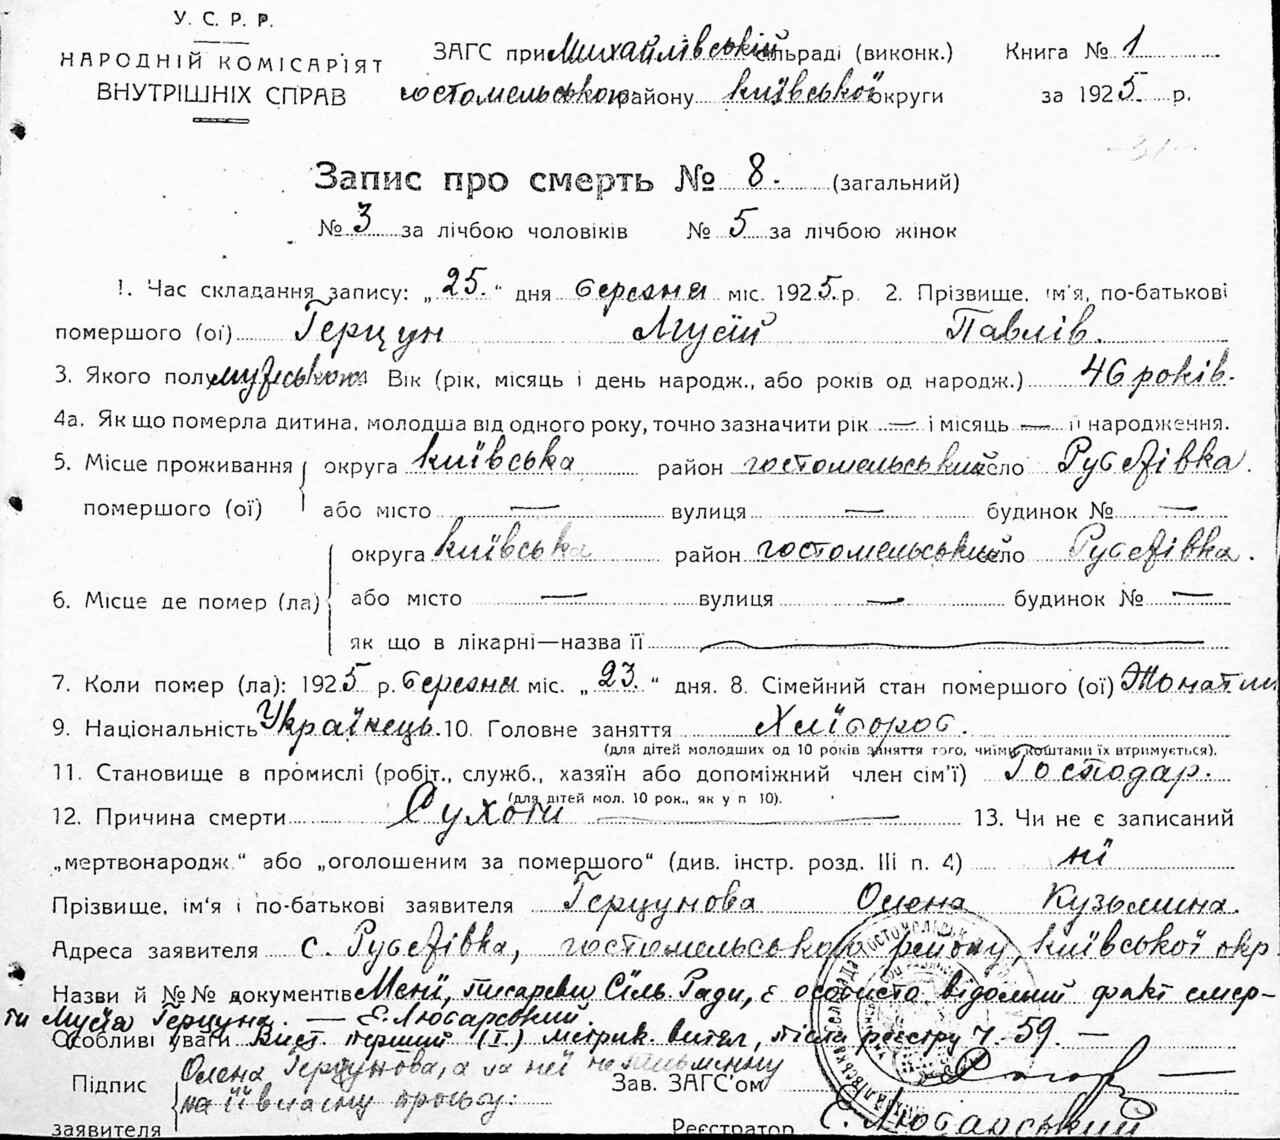 У. С. Р. Р.
НАРОДНІЙ КОМІСАРІЯТ
ВНУТРІШНІХ СПРАВ
ЗАГС при Михайлівській сільраді (виконк.)
гостомельського району київської округи
Книга № 1
за 1925 р.
Запис про смерть № 8. (загальний)
№ 3 за лічбою чоловіків № 5 за лічбою жінок
1. Час складання запису: „25.“ дня березня міс. 1925 р. 2. Прізвище, ім'я, по-батькові
помершого (ої) Герцун Мусій Павлів.
3. Якого полу мужського Вік (рік, місяць і день народж., або років од народж.) 46 років.
4а. Як що померла дитина, молодша від одного року, точно зазначити рік — і місяць — її народження.
5. Місце проживання помершого (ої) округа київська район гостомельський село Рубежівка.
або місто — вулиця — будинок № —
6. Місце де помер (ла) округа київська район гостомельський село Рубежівка.
або місто — вулиця — будинок № —
як що в лікарні—назва її
7. Коли помер (ла): 1925 р. березня міс. „23.“ дня. 8. Сімейний стан помершого (ої) Жонатий
9. Національність Українець. 10. Головне заняття Хлібороб.
(для дітей молодших од 10 років заняття того, чиїми коштами їх втримується).
11. Становище в промислі (робіт., служб., хазяїн або допоміжний член сім'ї) Господар.
(для дітей мол. 10 рок., як у п 10).
12. Причина смерти Сухоти 13. Чи не є записаний
„мертвонародж.“ або „оголошеним за помершого“ (див. інстр. розд. III п. 4) ні
Прізвище, ім'я і по-батькові заявителя Герцунова Олена Кузьмина.
Адреса заявителя с. Рубежівка, гостомельського району, київської окр.
Назви й №№ документів Мені, писареві Сіль Ради, є особисто відомий факт смер-
ти Мусія Герцуна. — Є. Любарський.
Особливі уваги Вист. перший (I.) метрик. витяг, після реєстру ч. 59. —
Підпис заявителя Олена Герцунова, а за неї неписьменну
на її власну просьбу:
Зав. ЗАГС'ом
Реєстратор Є. Любарський